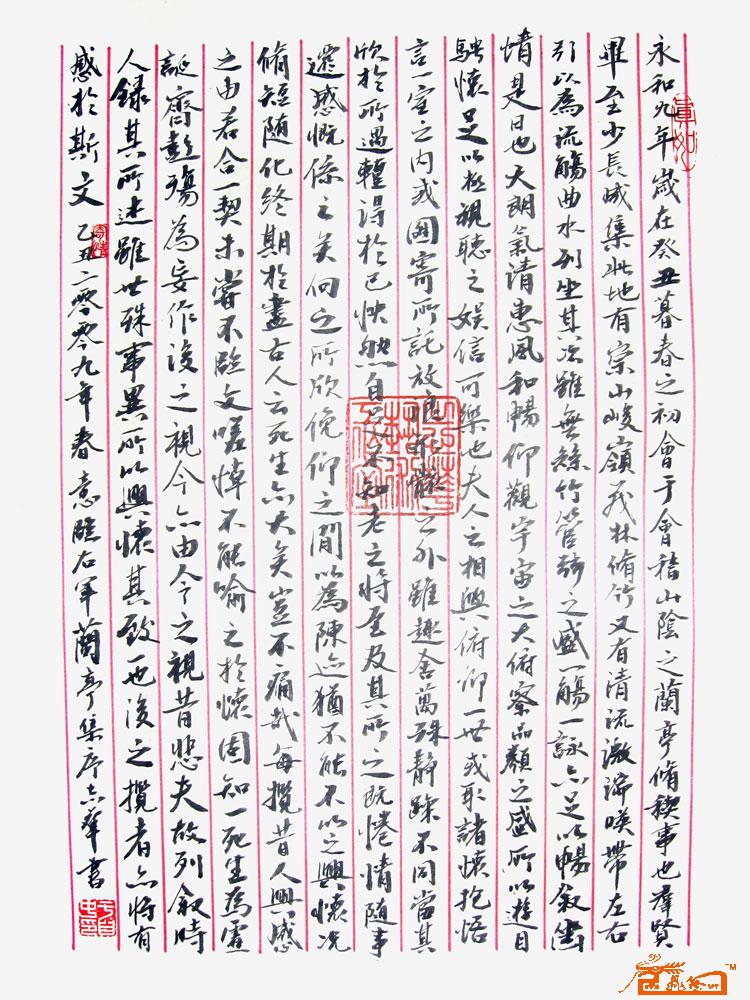 永和九年歲在癸丑暮春之初會于會稽山陰之蘭亭脩稧事也羣賢
畢至少長咸集此地有崇山峻嶺茂林脩竹又有清流激湍暎帶左右
引以為流觴曲水列坐其次雖無絲竹管弦之盛一觴一詠亦足以暢敘幽
情是日也天朗氣清惠風和暢仰觀宇宙之大俯察品類之盛所以遊目
騁懷足以極視聽之娛信可樂也夫人之相與俯仰一世或取諸懷抱悟
言一室之內或因寄所託放浪形骸之外雖趣舍萬殊靜躁不同當其
欣於所遇蹔得於己怏然自足不知老之將至及其所之既惓情隨事
遷感慨係之矣向之所欣俛仰之間以為陳迹猶不能不以之興懷況
脩短隨化終期於盡古人云死生亦大矣豈不痛哉每攬昔人興感
之由若合一契未嘗不臨文嗟悼不能喻之於懷固知一死生為虛
誕齊彭殤為妄作後之視今亦由今之視昔悲夫故列敘時
人錄其所述雖世殊事異所以興懷其致一也後之攬者亦將有
感於斯文 乙丑二零零九年春意臨右軍蘭亭集序志華書